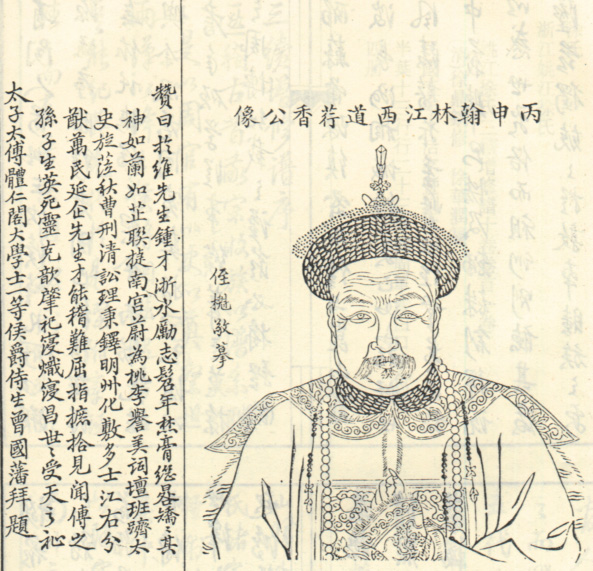 丙申翰林江西道荇香公像
侄挻敬摹
赞曰於維先生鍾才浙水勵志髫年焚膏继晷矯矯其
神如蘭如芷聯捷南宫蔚為桃李譽美词壇班躋太
史旋涖秋曹刑清訟理秉鐸明州化敷多士江右分
猷萬民延企先生才能稽難屈指摭拾見聞傳之
孫子生英死靈克歆肇祀寖熾寖昌世々受天之祉
太子太傅體仁閣大學士一等侯爵侍生曾國藩拜題